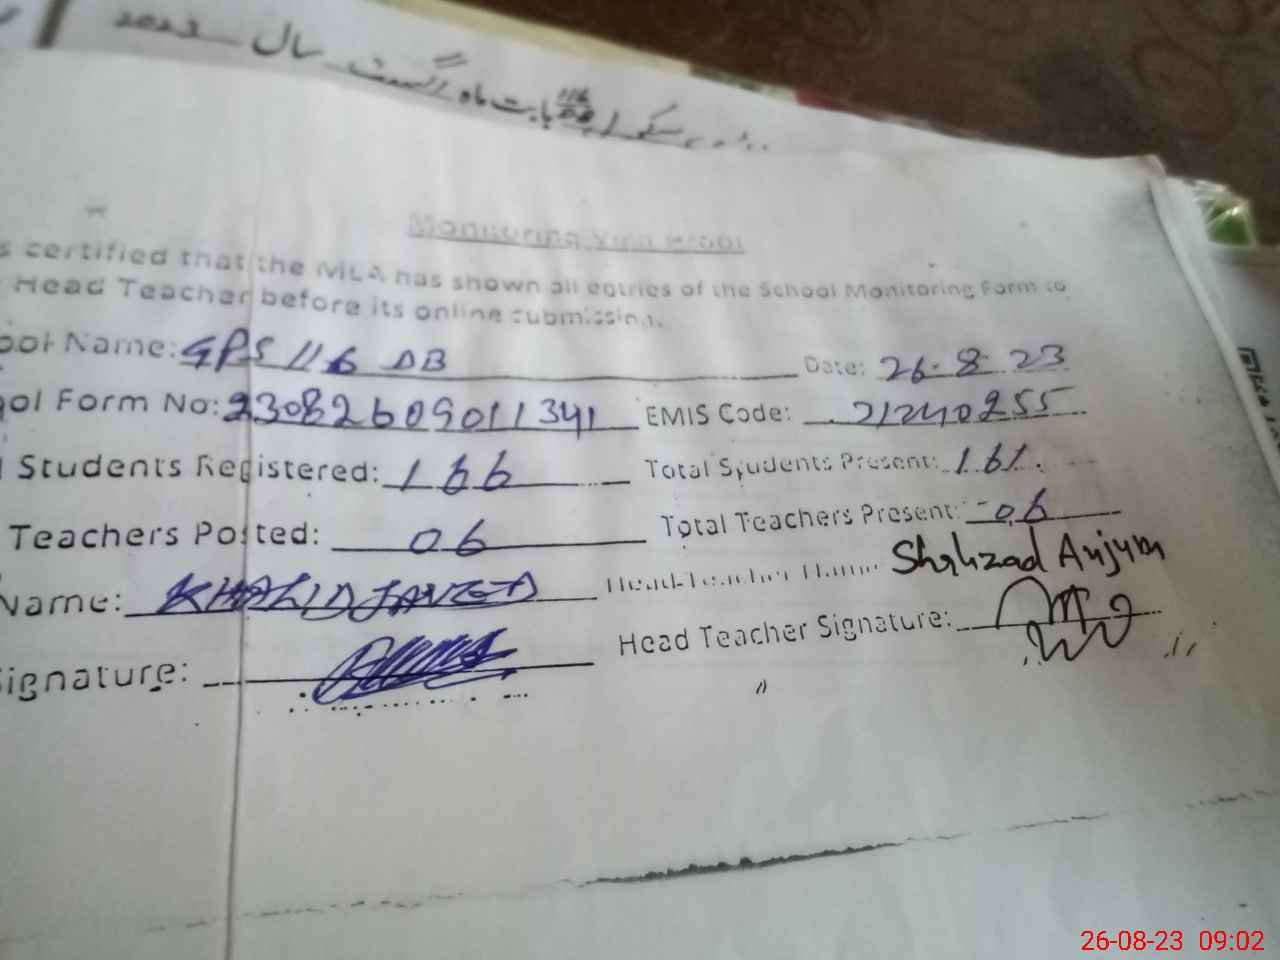 116/DB بابت ماہ اگست سال 2023
Monitoring Visit Proof
s certified that the MLA has shown all entries of the School Monitoring Form to
Head Teacher before its online submission.
ool Name: GPS 116 DB Date: 26-8-23
ool Form No: 23082609011341 EMIS Code: 31240255
Students Registered: 166 Total Students Present: 161.
Teachers Posted: 06 Total Teachers Present: 06
Name: KHALID JAVEED Head Teacher Name Shahzad Anjum
ignature: Head Teacher Signature:
26-08-23 09:02